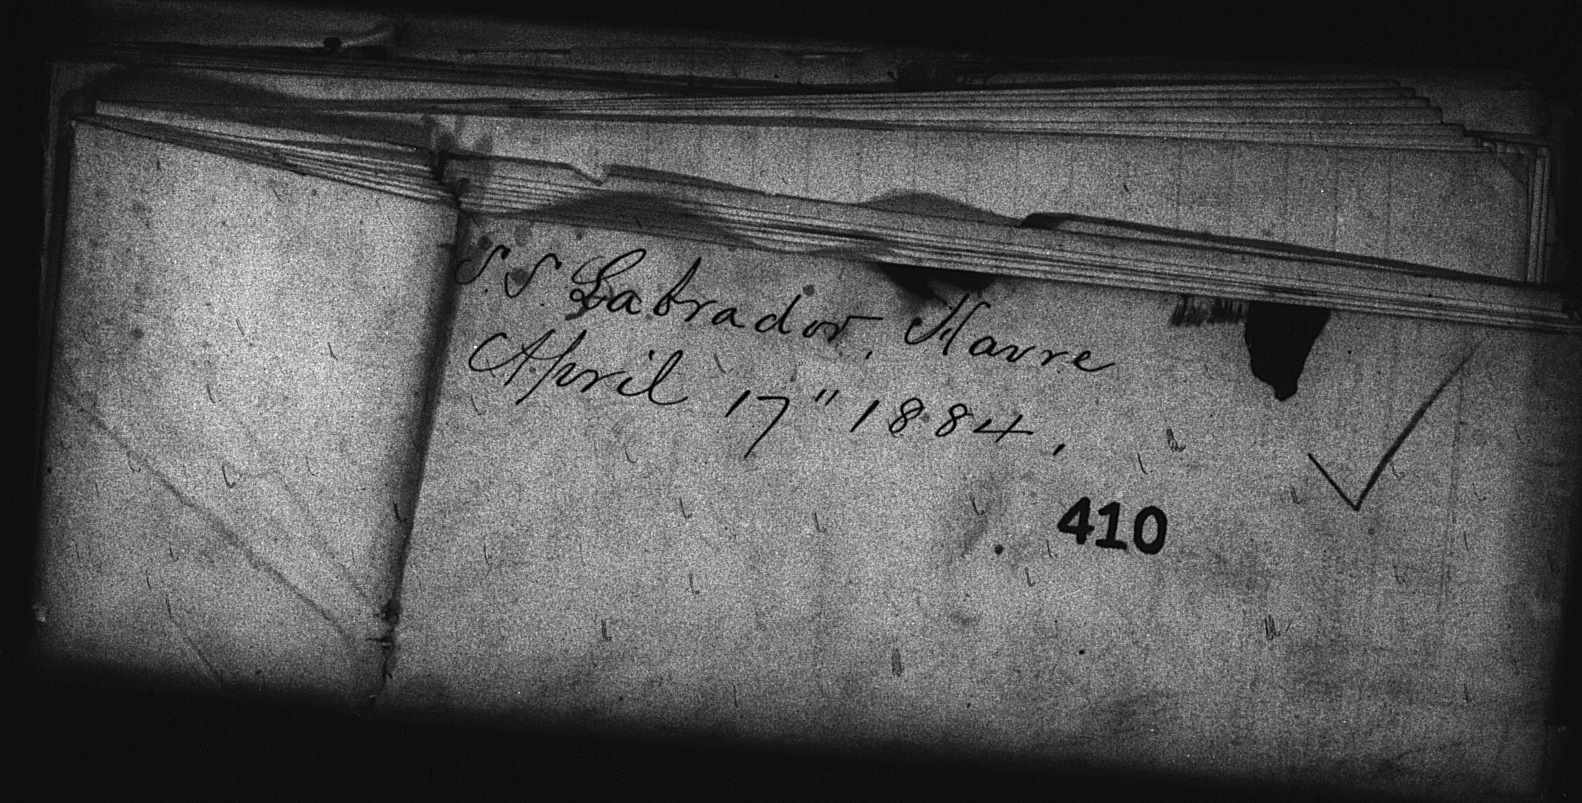 S.S. Labrador, Havre
April 17" 1884,
410